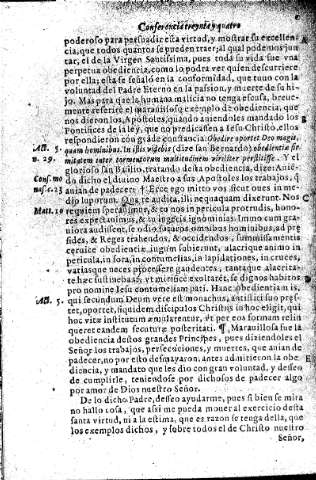 Conferencia treynta y quatro
poderoso para persuadir esta virtud, y mostrar su excellen-
cia, que todos quantos se pueden traer; al qual podemos jun-
tar, el de la Virgen Santissima, pues toda su vida fue vna
perpetua obediencia, como lo podra ver quien descurriere
por ella; esta se señaló en la conformidad, que tuuo con la
voluntad del Padre Eterno en la passion, y muerte de su hi-
jo. Mas para que la humana malicia no tenga escusa, breue-
mente referire el marauilloso exemplo de obediencia, que
nos dieron los Apostoles, quando auiendoles mandado los
Pontifices de la ley, que no predicassen a Iesu Christo, ellos
respondieron con grande constancia. Obedire oportet Deo magis,
Act. 5. quam hominibus. In istis videbis (dize san Bernardo) obedientiæ fir-
v. 29. mitatem inter tormentorum multitudinem viriliter perstitisse. Y el
glorioso san Basilio, tratando desta obediencia, dize: Auien-
Cons. mo do dicho el diuino Maestro a sus Apostoles los trabajos, q̃
nas c. 23 auian de padecer: Ecce ego mitto vos sicut oues in me-
dijo luporum. Quo re audita, illi nequaquam dixerunt. Nos
Matt. 10 requiem sperabamus, & tu nos in pericula protrudis, hono-
res expectabamus, & tu ingeris ignominias: Immo cum gra-
uiora audissent, se odio futuros omnibus hominibus, ad præ
sides, & Reges trahendos, & occidendos, summissa ceruice
obedientiæ iugum subierunt, alacrique animo in
pericula, in fora, in contumelias, in lapidationes, in cruces,
variasque neces procesere gaudentes, tantaque alacrita-
te hæc sustinebant, vt mirifice exultarét, se dignos habitos
pro nomine Iesu contumeliam pati. Hanc obedientiam is,
Act. 5. qui secundum Deum vere est monachus, antistiti suo præs-
tet, oportet, siquidem discipulos Christus in hoc eligit, qui
hoc vitæ institutum æmularentur, vt per eos formam relin
queret eandem secuturæ posteritati. ¶ Marauillosa fue la
obediencia destos grandes Principes, pues diziendoles el
Señor los trabajos, persecuciones, y muertes, que auian de
padecer, no por esto desmayaron: antes admitieron la obe-
diencia, y mandato que les dio con gran voluntad, y desseo
de cumplirle, teniendose por dichosos de padecer algo
por amor de Dios nuestro Señor.
De lo dicho Padre, desseo ayudarme, pues si bien se mira
no hallo cosa, que assi me pueda mouer al exercicio desta
santa virtud, ni a la estima, que es razon se tenga della, que
los exemplos dichos, y sobre todos el de Christo nuestro
Señor,